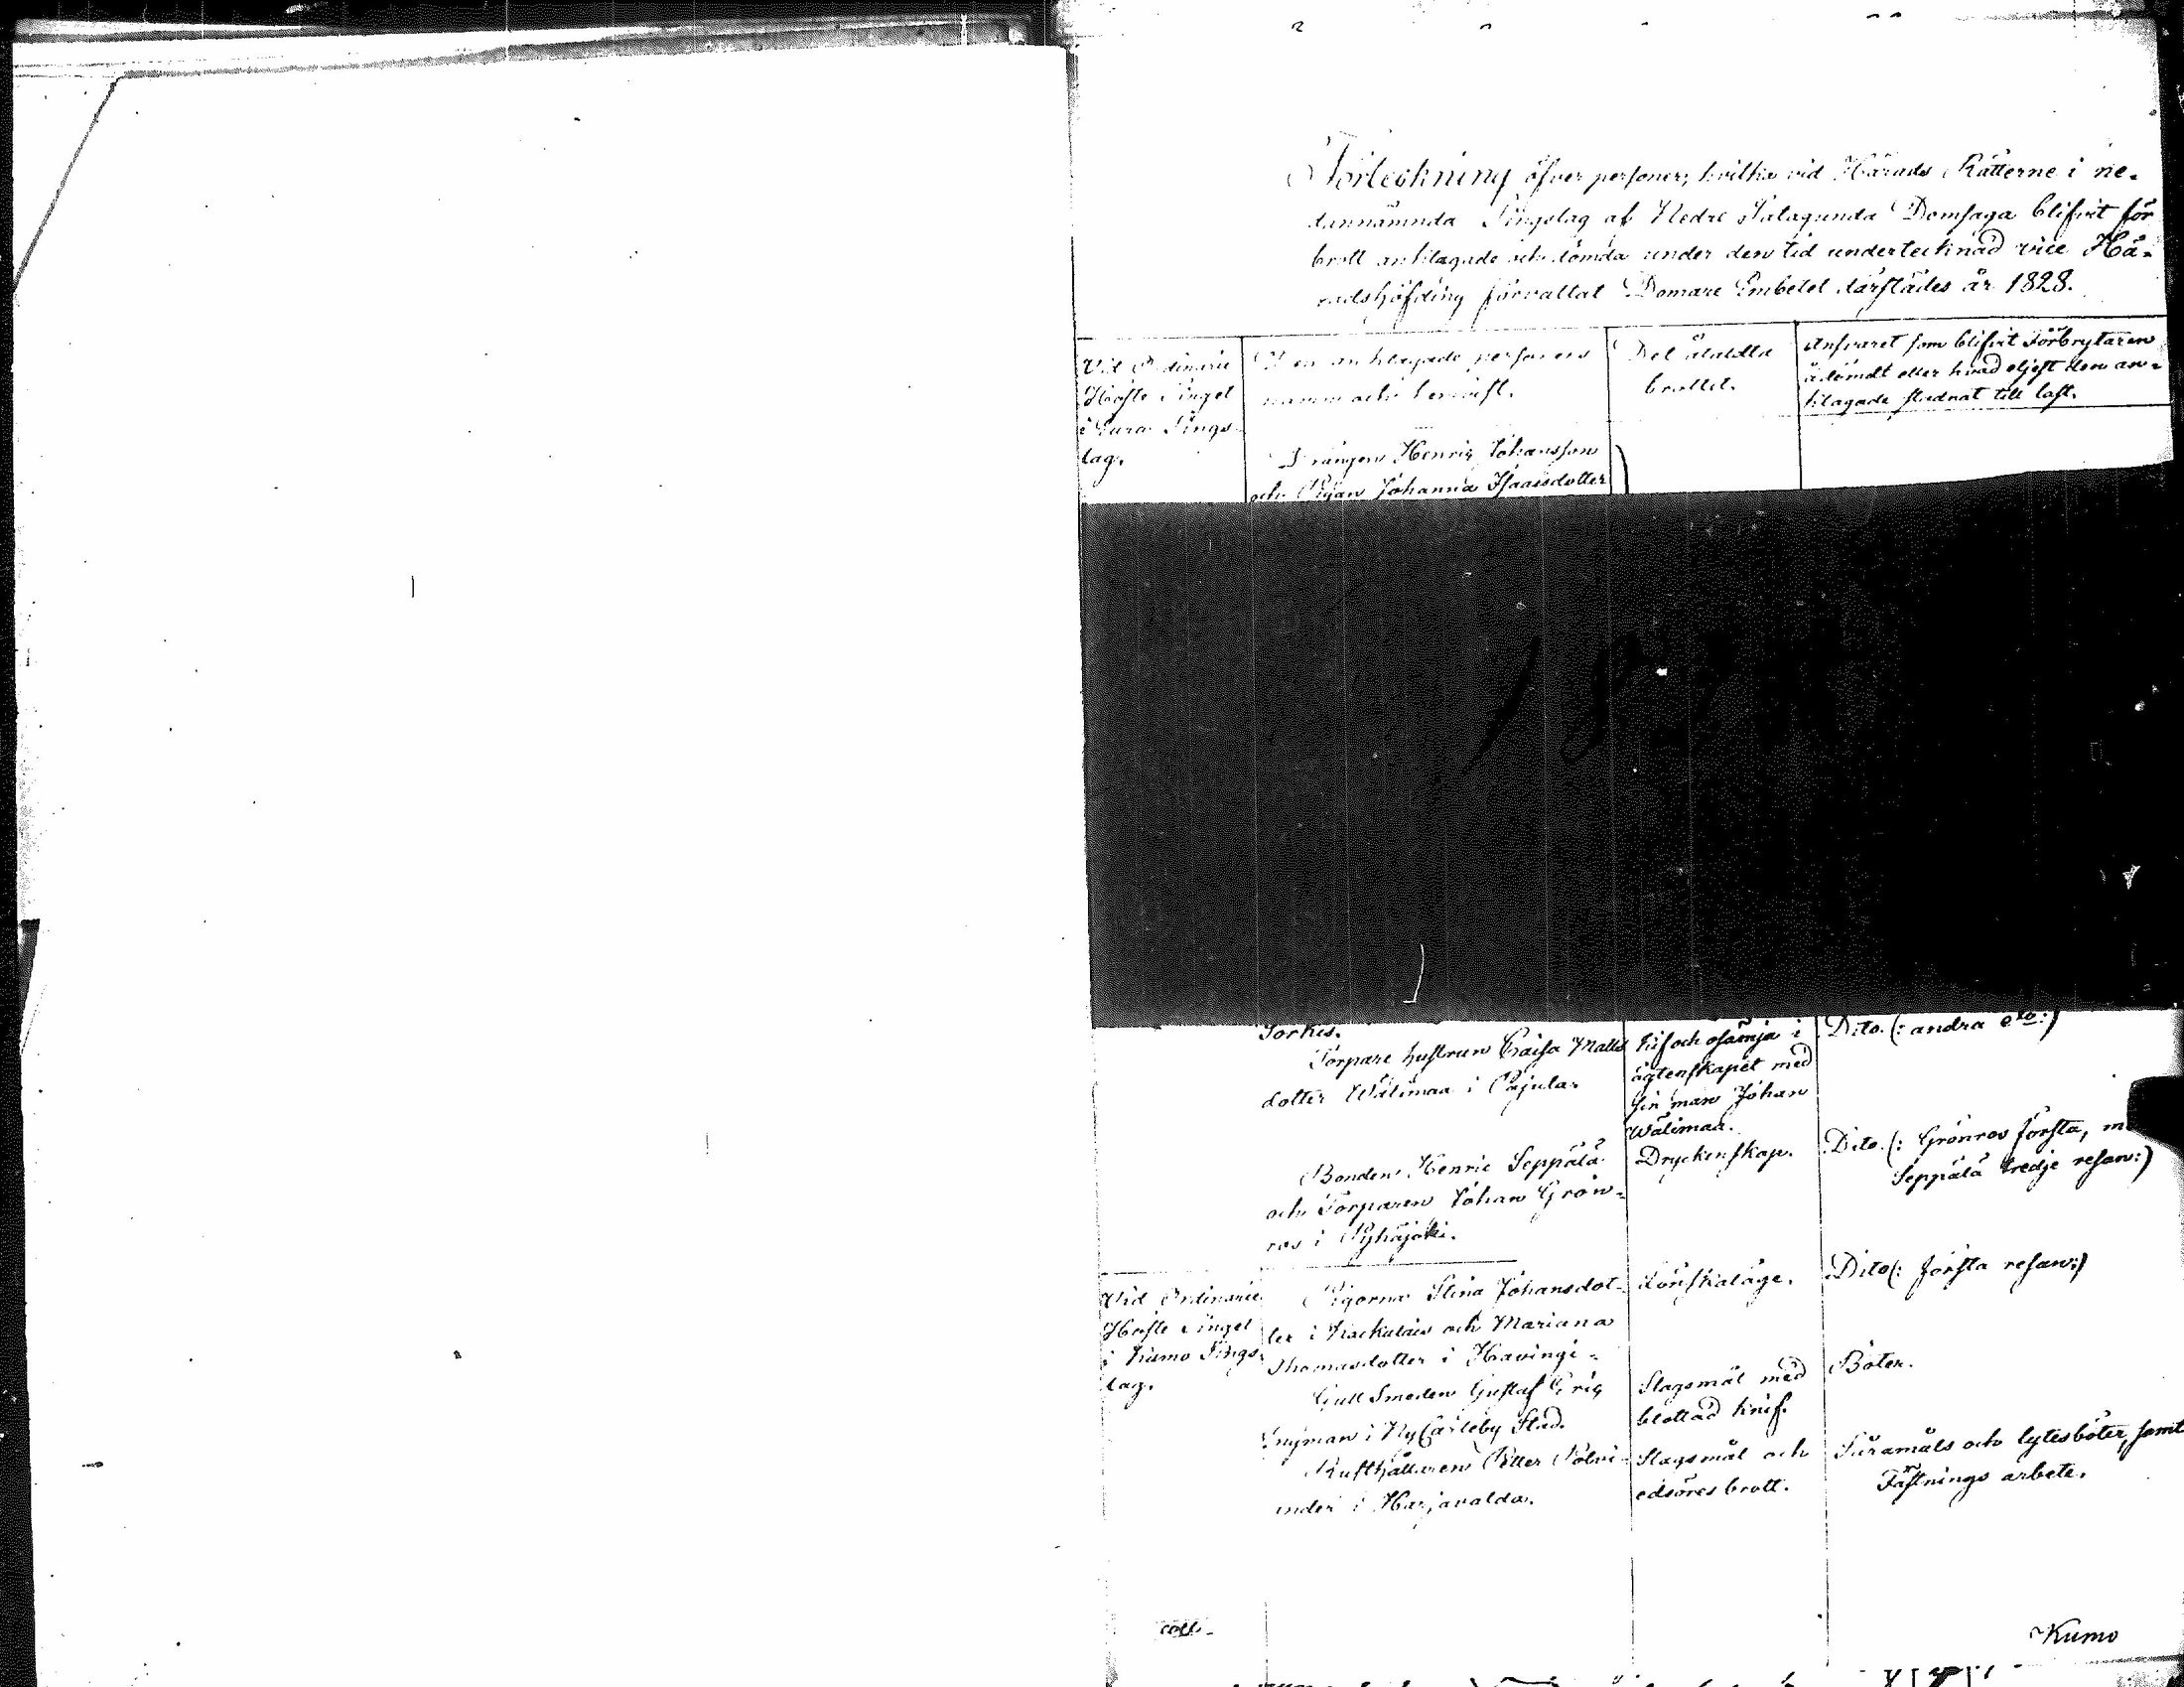 Förteckning öfver personer, hvilka vid Härads Rätterne i ne-
dannämnda Tingslag af Nedre Satagunda Domsaga blifvit för
brott anklagade och dömda under den tid undertecknad vice Hä-
radshöfding förvaltat Domare Embetet därstädes år 1828.
Vid Ordinarie
Höste Tinget
i Eura Tings-
lag.
Den anklagade personens
namn och hemvist.
Det åtaldta
brottet.
Ansvaret som blifvit Förbrytaren
ådömdt eller hvad eljest den an-
klagade stadnat till last.
Drängen Henric Johansson
och Pigan Johanna Isaacsdotter
Torpare hustrun Caisa Matts
dotter Wälimaa i Pajula.
Kif och osämja i
ägtenskapet med
sin man Johan
Wälimaa.
Dito. (: andra
Bonden Henric Seppälä
och Torparen Johan Grön-
ros i Pyhäjoki.
Dryckenskap.
Dito. (: Grönros första,
Seppälä tredje resan:)
Vid Ordinarie
Höste Tinget
i Kumo Tings-
lag.
Pigorna Stina Johansdot-
ter i och Mariana
Thomasdotter i
Lönskaläge.
Dito (: första resan:)
Gull Smeden Gustaf Eric
i NyCarleby Stad.
Slagsmål med
blottad knif.
Böter.
Rusthållaren Petter
i Harjavalda.
Slagsmål och
edsöresbrott.
Såramåls och lytesböter, samt
Fästnings arbete.
coll.
Kumo